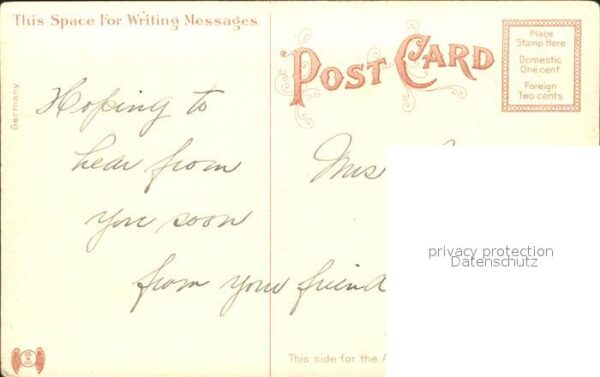 This Space For Writing Messages
POST CARD
Place
Stamp Here
Domestic
One cent
Foreign
Two cents
Germany
Hoping to
hear from
you soon
from your friend
privacy protection
Datenschutz
This side for the A